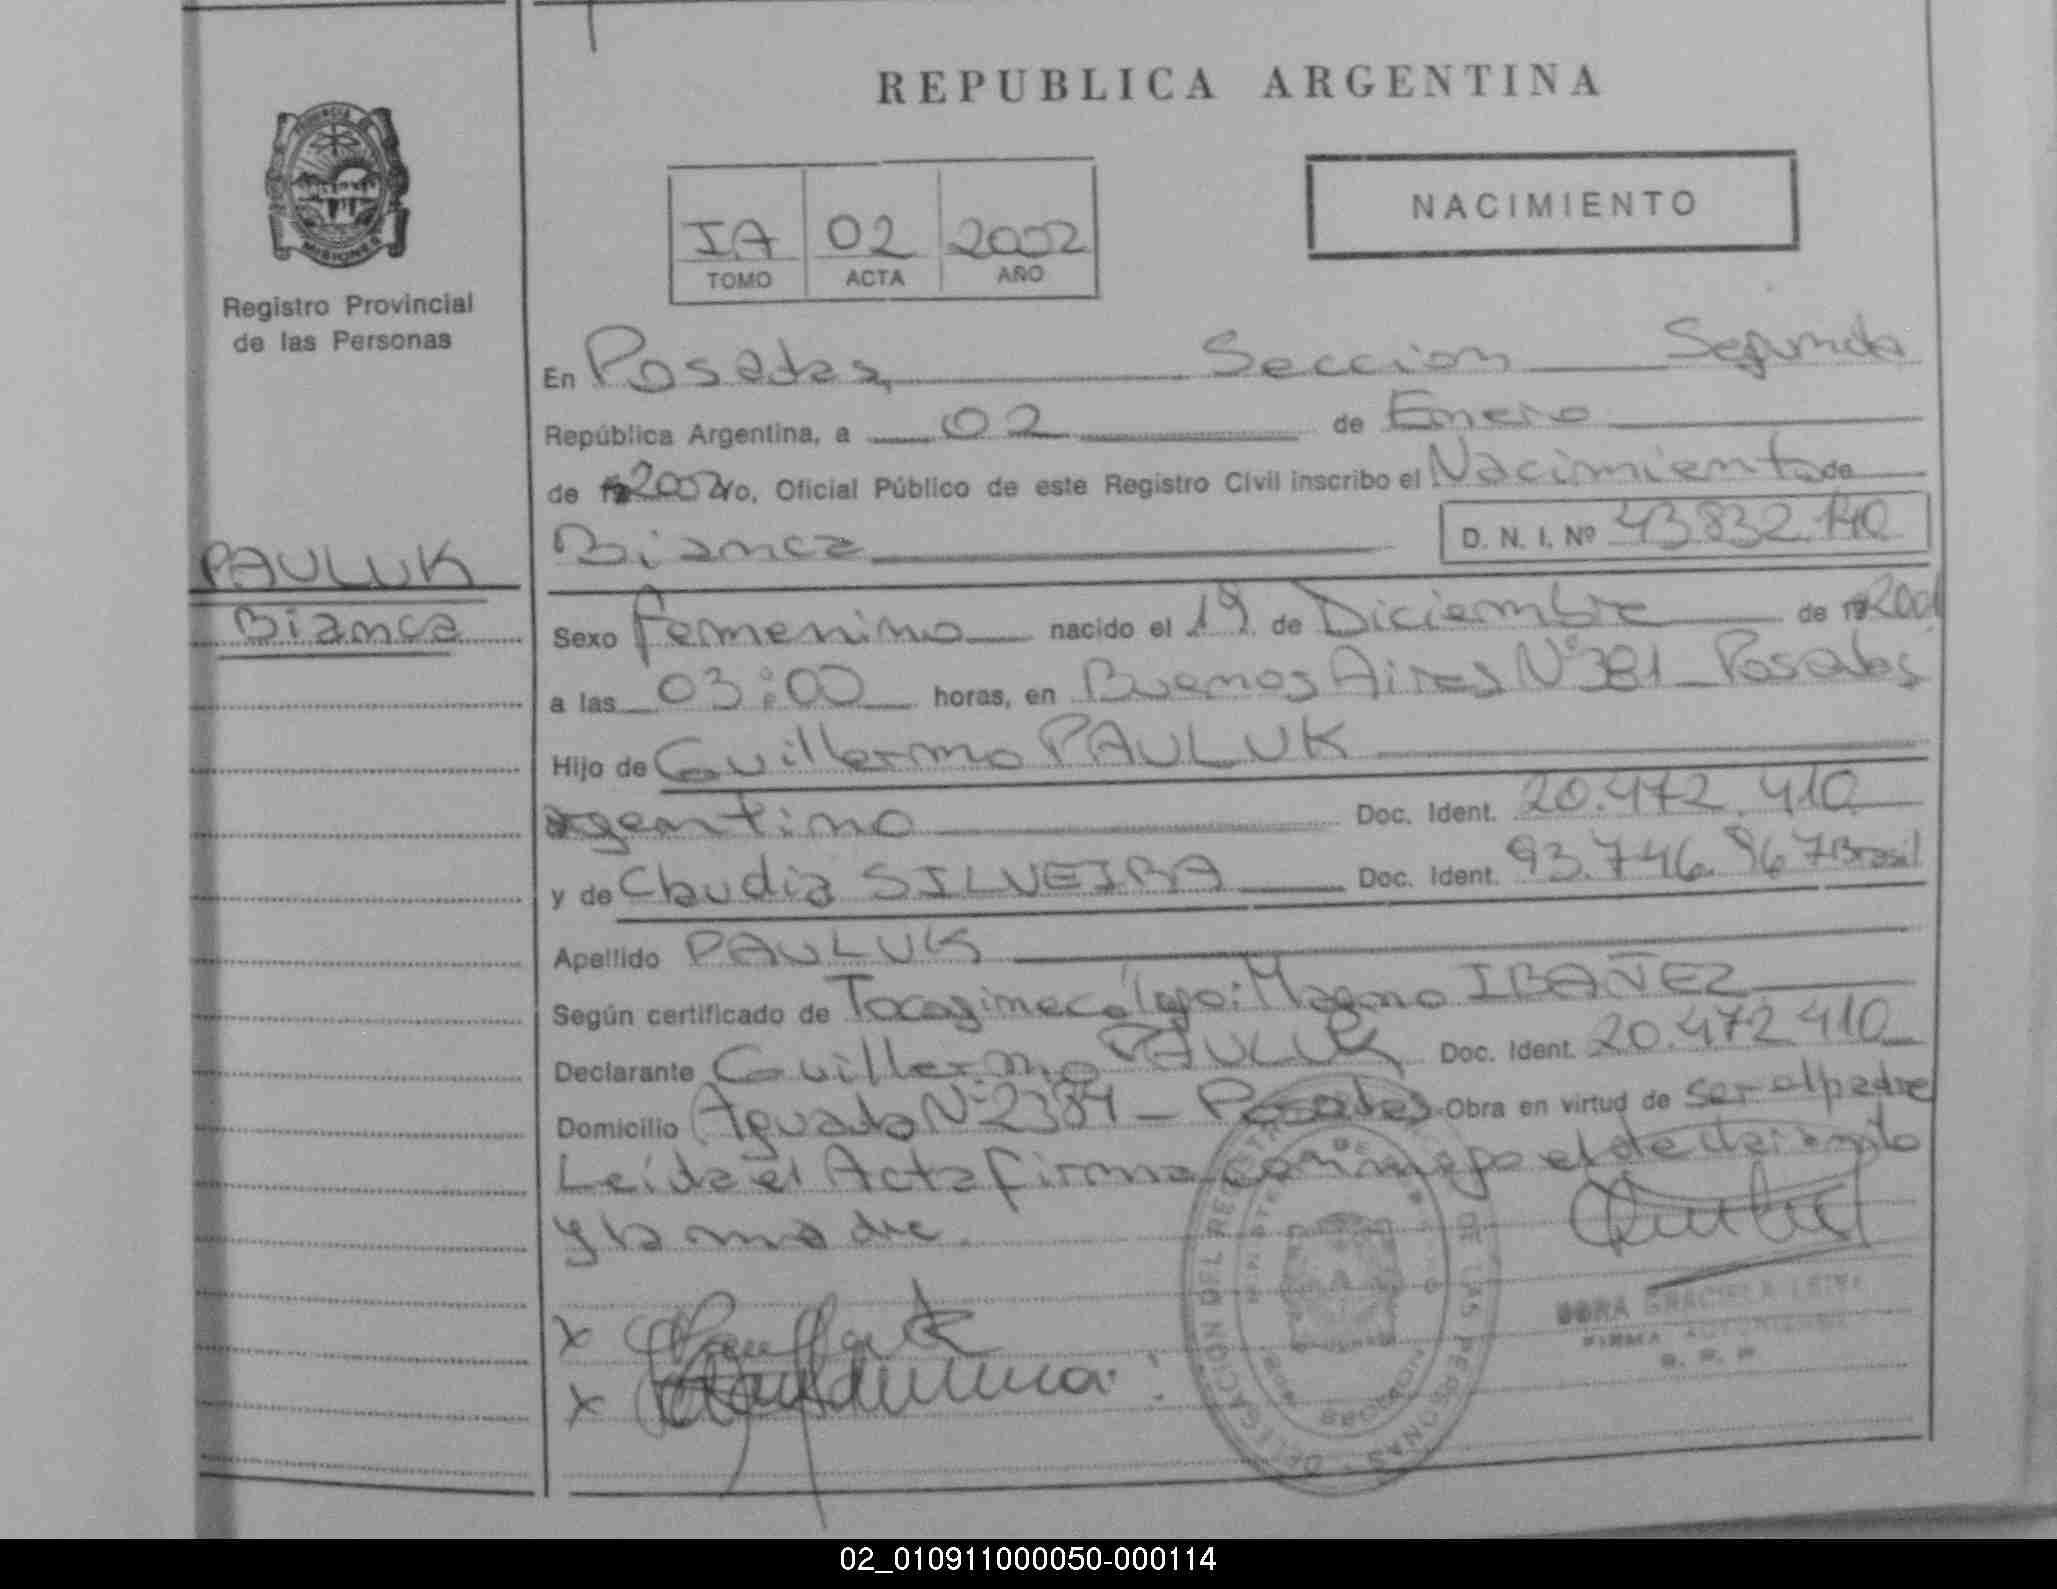 REPUBLICA ARGENTINA
NACIMIENTO
IA 02 2002
TOMO ACTA AÑO
PROVINCIA DE
MISIONES
Registro Provincial
de las Personas
PAULUK
Bianca
En Posadas, Seccion Segunda
República Argentina, a 02 de Enero
de 2002 Yo, Oficial Público de este Registro Civil inscribo el Nacimiento de
Bianca D. N. I. Nº 43.832.140
Sexo femenino nacido el 19 de Diciembre de 2001
a las 03:00 horas, en Buenos Aires Nº 381 - Posadas
Hijo de Guillermo PAULUK
argentino Doc. Ident. 20.472.410
y de Claudia SILVEIRA Doc. Ident. 93.746.967 Brasil
Apellido PAULUK
Según certificado de Tocoginecólogo: Magno IBAÑEZ
Declarante Guillermo PAULUK Doc. Ident. 20.472.410
Domicilio Aguado Nº 2384 - Posadas Obra en virtud de ser el padre
Leída el Acta firma conmigo el declarante
y la madre.
X
X
DELEGACION DEL REGISTRO DE LAS PERSONAS
GRACIELA
FIRMA AUTORIZADA
R. P. P.
02_010911000050-000114